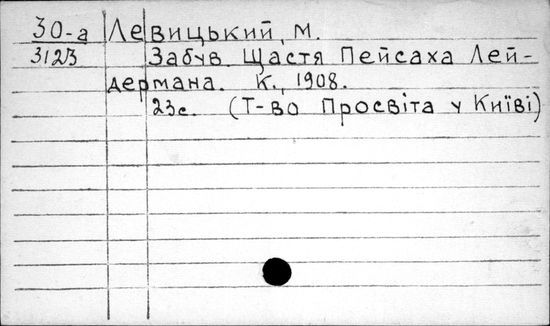 30-а Левицький, М.
3123 Забув. Щастя Пейсаха Лей-
дермана. К., 1908.
23с. (Т-во Просвіта у Київі)